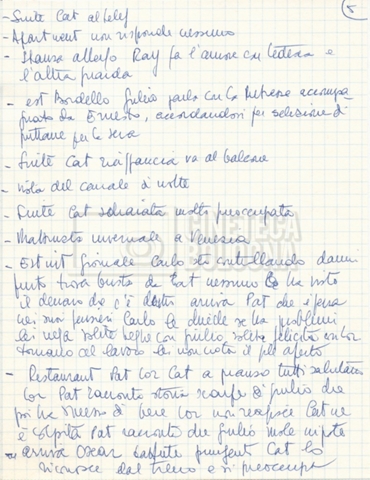 5
- Suite Cat al telef
- Apartment non risponde nessuno
- Stanza albergo Ray fa l'amore con tedesca e
l'altra guarda
- est Bordello Giulio parla con la accompa
gnato da Ernesto, accordandosi per selezione di
puttane per la sera
- Suite Cat riaffaccia va al balcone
- Vista del canale di notte
- Suite Cat sdraiata molto preoccupata
- Mattinata invernale a Venezia
- Est int Giornale Carlo sta controllando danni
CINETECA
BOLOGNA
posto trova busta da Cat nessuno ha visto
il denaro che c'è dentro arriva Pat che è
nei suoi pensieri Carlo le chiede se ha problemi
lei nega solite beghe con giulio, solita felicità
tornano al lavoro lei non nota il plico aperto
- Restaurant Pat Cor Cat a pranzo tutti salutano
Cor Pat racconta storia di giulio che
poi ha smesso di bere Cor non reagisce Cat ne
è colpita Pat racconta che Giulio
arriva Oscar Cat lo
riconosce dal treno e si preoccupa